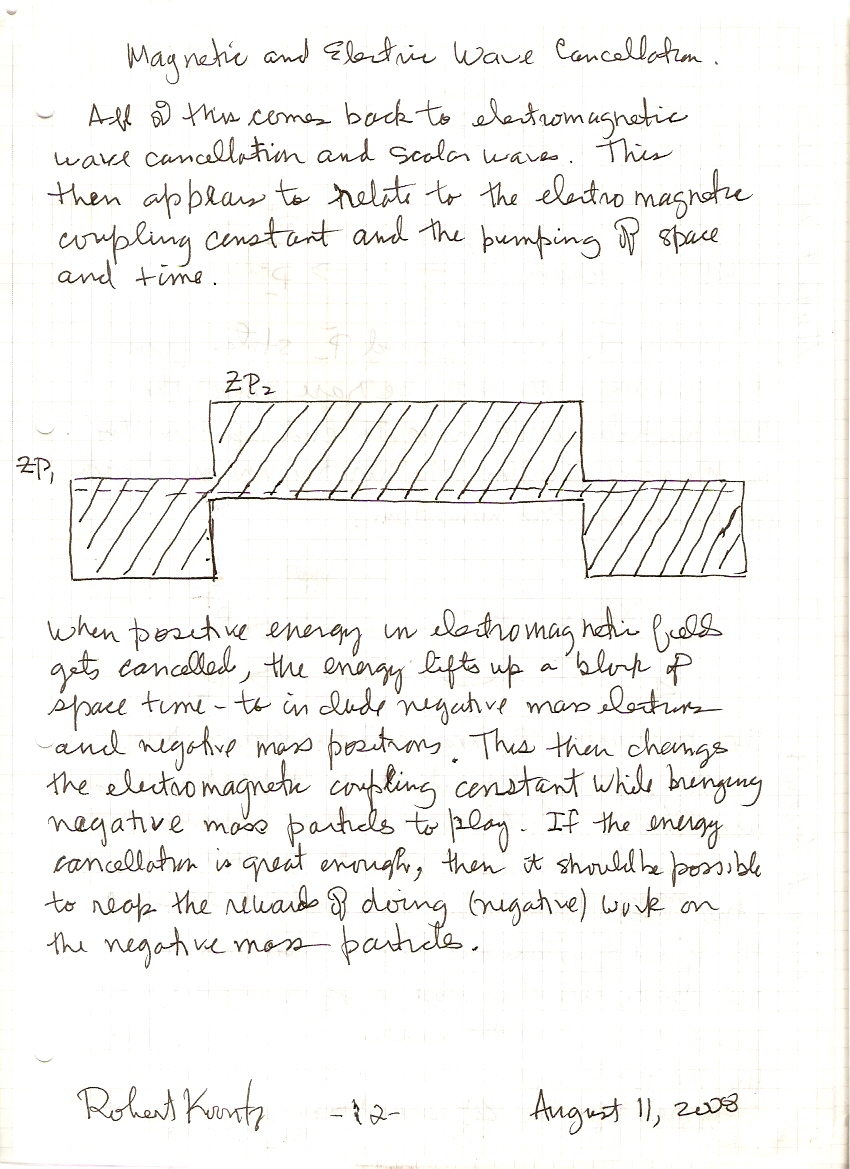 Magnetic and Electric Wave Cancellation.
All of this comes back to electromagnetic
wave cancellation and scalar waves. This
then appears to relate to the electromagnetic
coupling constant and the pumping of space
and time.
ZP2
ZP1
When positive energy in electromagnetic fields
gets cancelled, the energy lifts up a block of
space time - to include negative mass electrons
and negative mass positrons. This then changes
the electromagnetic coupling constant while bringing
negative mass particles to play. If the energy
cancellation is great enough, then it should be possible
to reap the rewards of doing (negative) work on
the negative mass particles.
Robert Koontz -12- August 11, 2008